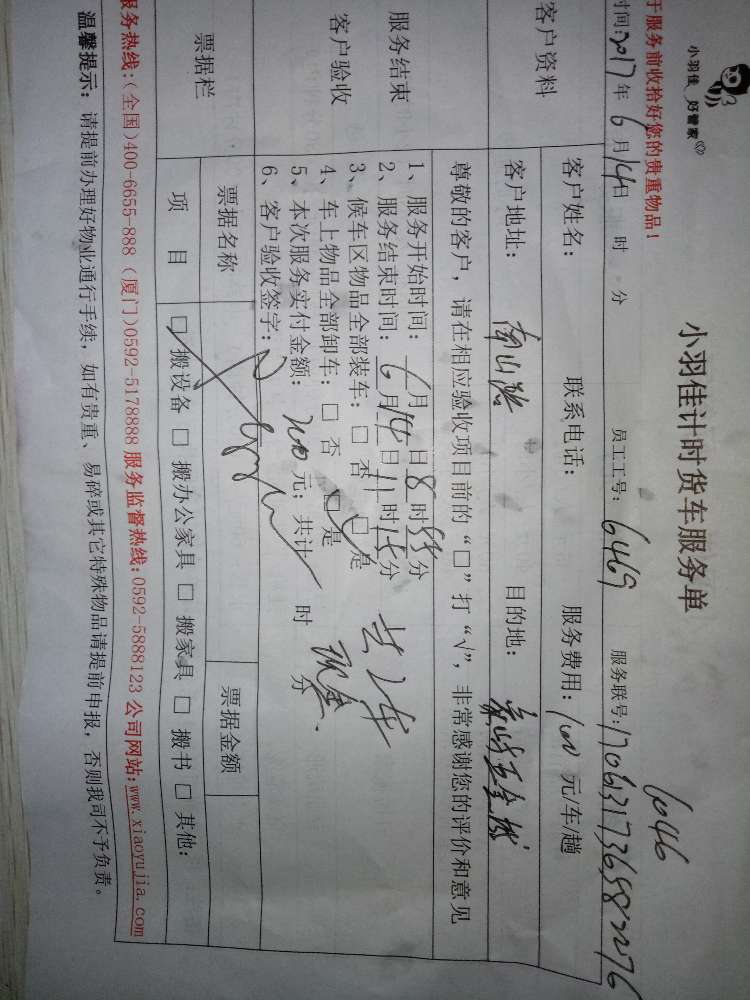 小羽佳 好管家
小羽佳计时货车服务单
6046
于服务前收拾好您的贵重物品！
时间:2017年6月14日 时 分 员工工号: 6469 服务联号:
客户资料
客户姓名: 联系电话: 服务费用: 100 元/车/趟
客户地址: 南山路 目的地:
服务结束
客户验收
尊敬的客户，请在相应验收项目前的“□”打“√”，非常感谢您的评价和意见
1、服务开始时间: 6月14日8时
2、服务结束时间: 6月14日11时15分
3、候车区物品全部装车: □ 否 □ 是
4、车上物品全部卸车: □ 否 □ 是
5、本次服务实付金额: 200元; 共计 时 分
6、客户验收签字:
共2车
现金.
票据栏
票据名称 票据金额
项 目 □ 搬设备 □ 搬办公家具 □ 搬家具 □ 搬书 □ 其他:
服务热线:(全国)400-6655-888 (厦门)0592-5178888 服务监督热线:0592-5888123 公司网站:www.xiaoyujia.com
温馨提示: 请提前办理好物业通行手续，如有贵重、易碎或其它特殊物品请提前申报，否则我司不予负责。